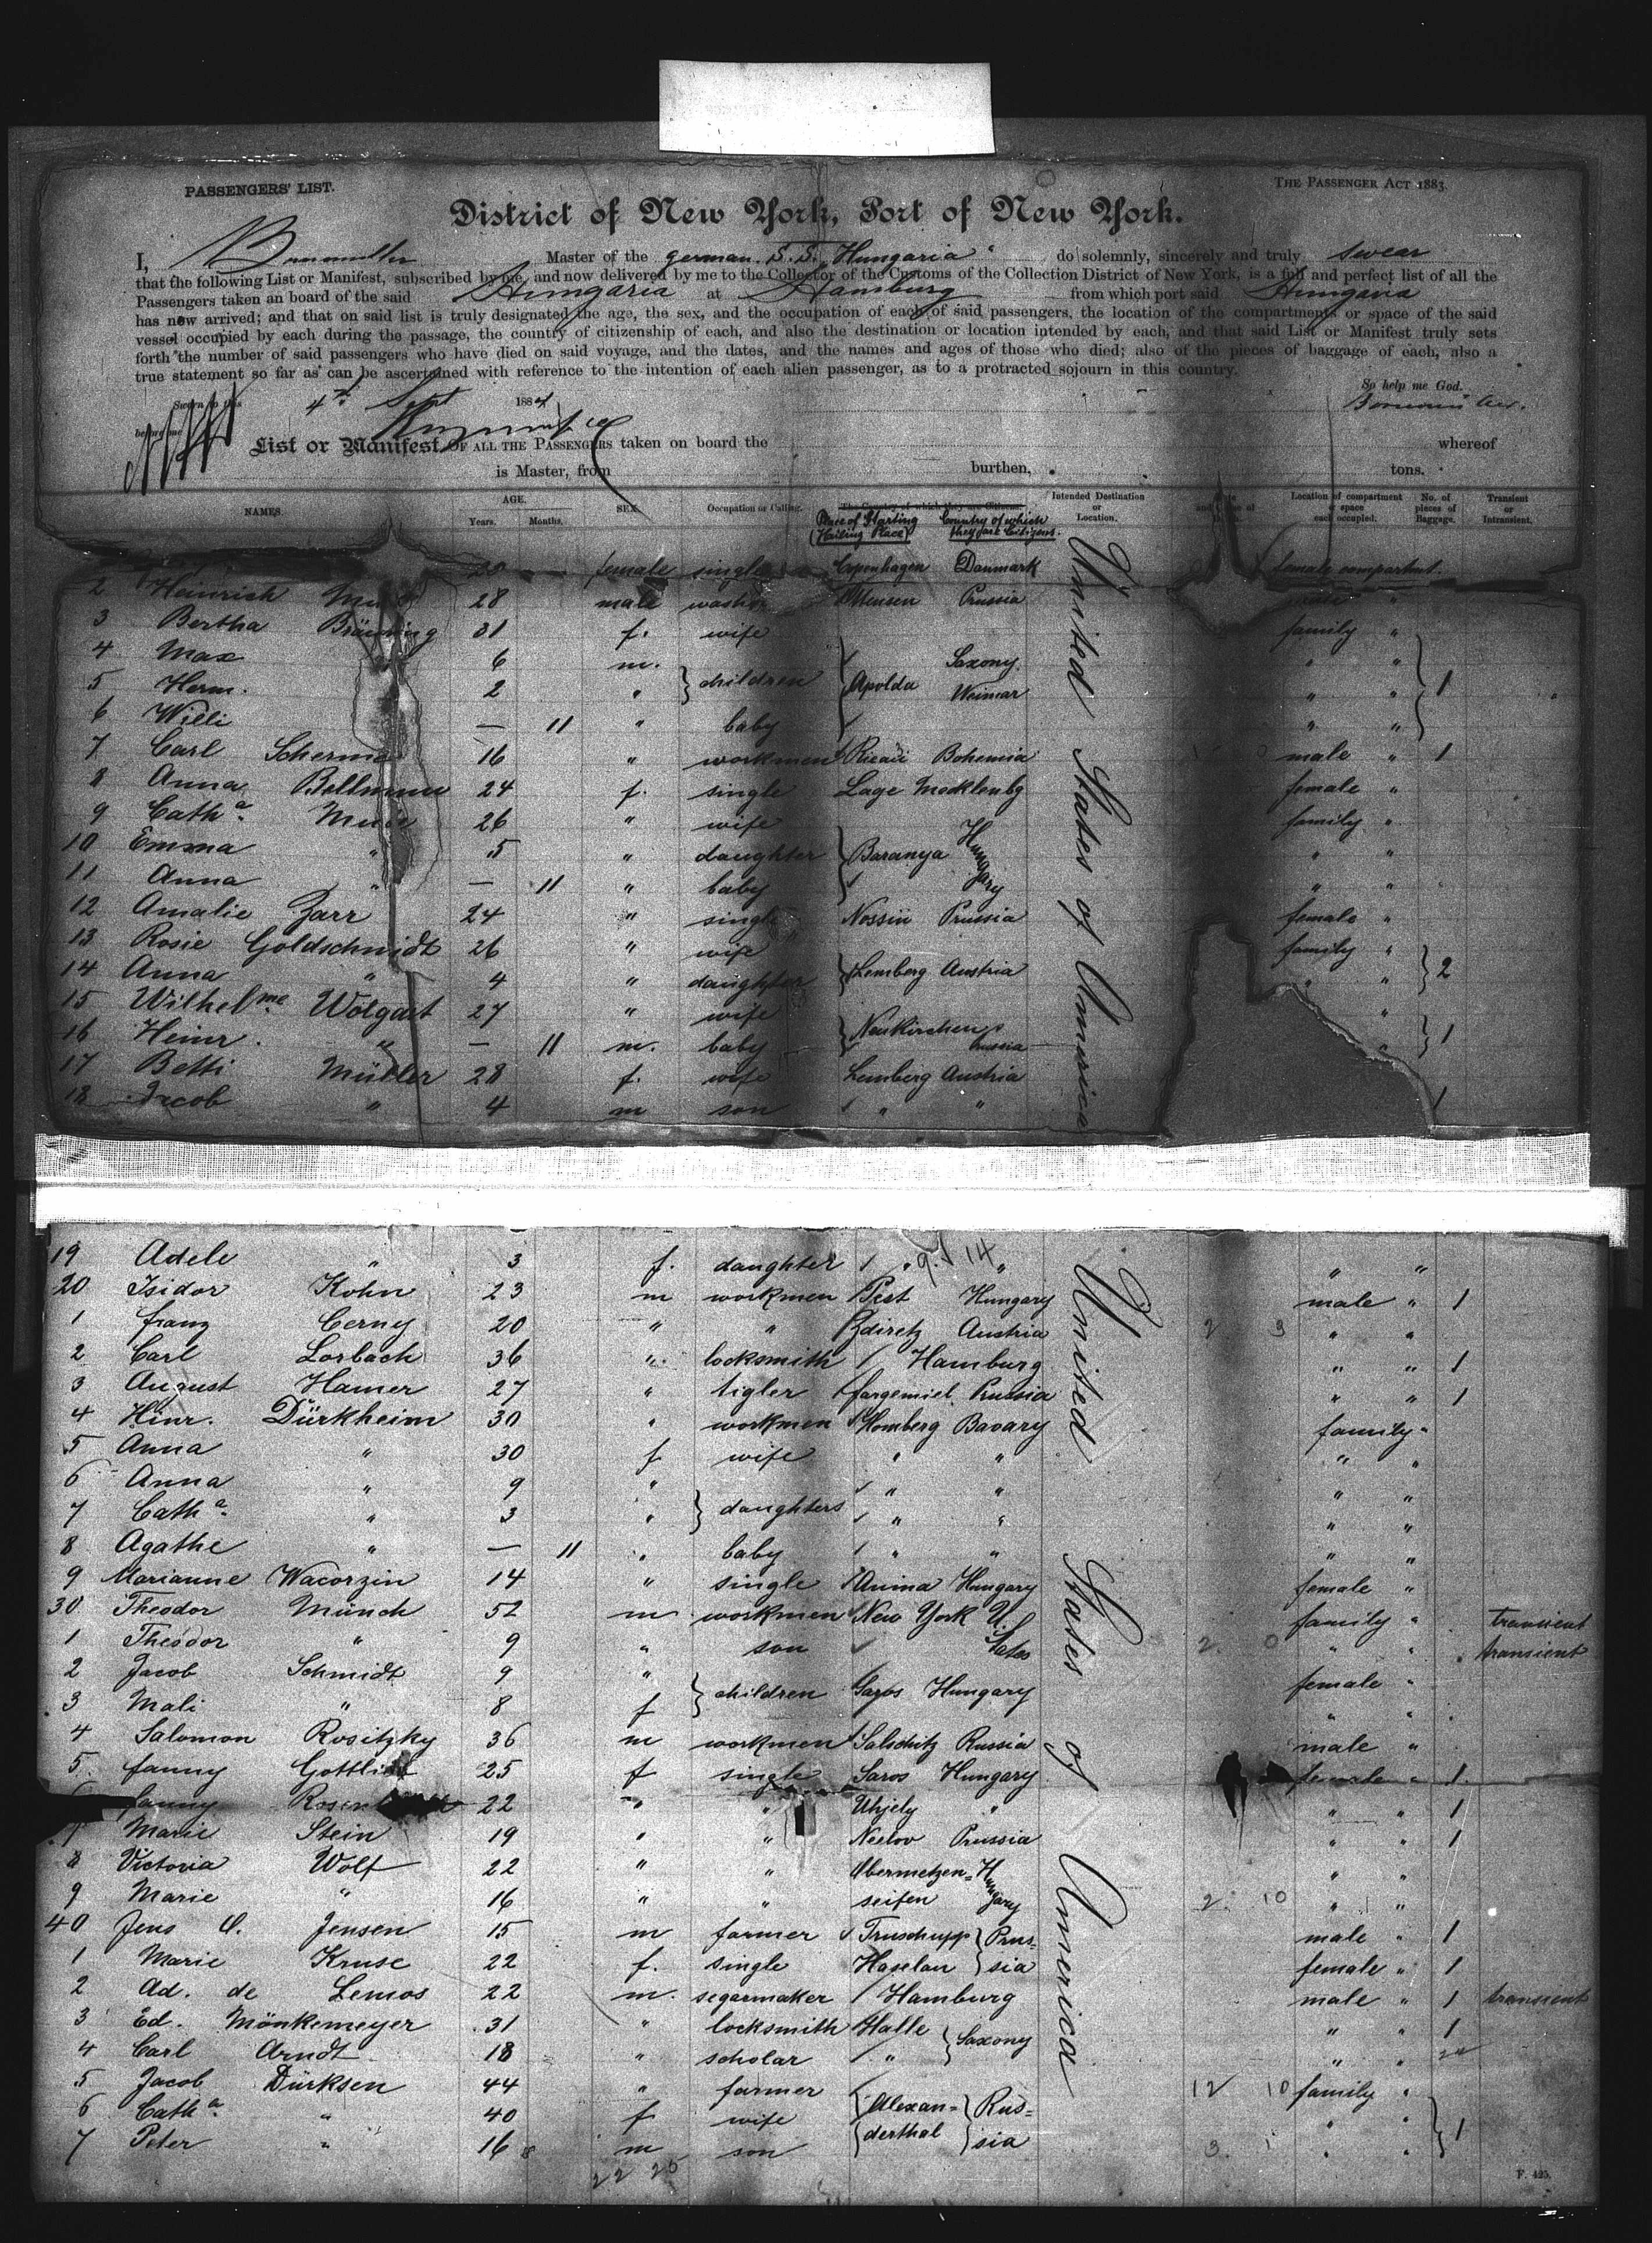 PASSENGERS' LIST.
THE PASSENGER ACT 1883.
District of New York, Port of New York.
I, Master of the german. S.S. "Hungaria" do solemnly, sincerely and truly swear
that the following List or Manifest, subscribed by me, and now delivered by me to the Collector of the Customs of the Collection District of New York, is a full and perfect list of all the
Passengers taken on board of the said Hungaria at Hamburg from which port said Hungaria
has now arrived; and that on said list is truly designated the age, the sex, and the occupation of each of said passengers, the location of the compartment or space of the said
vessel occupied by each during the passage, the country of citizenship of each, and also the destination or location intended by each; and that said List or Manifest truly sets
forth the number of said passengers who have died on said voyage, and the dates, and the names and ages of those who died; also of the pieces of baggage of each, also a
true statement so far as can be ascertained with reference to the intention of each alien passenger, as to a protracted sojourn in this country.
So help me God.
Sworn to this 4th Sept 188
before me
List or Manifest OF ALL THE PASSENGERS taken on board the whereof
is Master, from burthen, tons.
NAMES. AGE. Years. Months. SEX. Occupation or Calling. The Country of which they are Citizens. Place of Starting (Hailing Place) Country of which they are Citizens. Intended Destination or Location. Location of compartment or space each occupied. No. of pieces of Baggage. Transient or Intransient.
United States of America
female single Copenhagen Danmark female compartmt.
2 Heinrich 28 male Ottensen Prussia male "
3 Bertha Bräuning 31 f. wife family "
4 Max 6 m. children Saxony " "
5 Herm. 2 " Apolda Weimar " " 1
6 Willi — 11 " baby " "
7 Carl 16 " workmen Bohemia male " 1
8 Anna Bellmann 24 f. single Lage Mecklenbg female "
9 Catha. 26 " wife family "
10 Emma " 5 " daughter Baranya Hungary " "
11 Anna " — 11 " baby " "
12 Amalie Zarr 24 " single Nossin Prussia female "
13 Rosie Goldschmidt 26 " wife family "
14 Anna " 4 " daughter Lemberg Austria " " 2
15 Wilhelme. Wolgast 27 " wife "
16 Heinr. " — 11 m. baby Neukirchen Prussia " 1
17 Betti Müller 28 f. wife Lemberg Austria
18 Jacob " 4 m son " " 1
19 Adele " 3 f. daughter " " " "
9. 14
20 Isidor Kohn 23 m workmen Pest Hungary male " 1
United States of America
1 Franz Cerny 20 " " Zdiretz Austria 2 3 " "
2 Carl Lorbach 36 " locksmith Hamburg " " 1
3 August Hamer 27 " tigler Prussia " " 1
4 Hinr. Dürkheim 30 " workmen Homberg Bavary family "
5 Anna " 30 f wife " " " "
6 Anna " 9 " daughters " " " "
7 Catha. " 3 " " " " "
8 Agathe " — 11 " baby " " " "
9 Marianne Wacorzin 14 " single Hungary female "
30 Theodor Münch 52 m workmen New York U. States family " transient
1 Theodor " 9 " son 2 0 " " transient
2 Jacob Schmidt 9 " children Saros Hungary female "
3 Mali " 8 f " "
4 Salomon Rositzky 36 m workmen Russia male "
5 Fanny Gottlieb 25 f single Saros Hungary female " 1
Fanny 22 " " Uhjely " " " 1
7 Marie Stein 19 " " Prussia " " 1
8 Victoria Wolf 22 " " Obermetzen= Hungary " "
9 Marie " 16 " " seifen 2 10 " "
40 Jens Jensen 15 m farmer Prus= male " 1
1 Marie Kruse 22 f. single Haselau sia female " 1
2 Ad. de Lemos 22 m. segarmaker Hamburg male " 1 transient
3 Ed. Mönkemeyer 31 " locksmith Halle Saxony " " 1
4 Carl Arndt 18 " scholar " " "
5 Jacob Dürksen 44 " farmer 12 10 family "
6 Catha. " 40 f wife Alexan= Rus= " " 1
7 Peter " 16 m son derthal sia 3. 1 " "
22 25
F. 425.